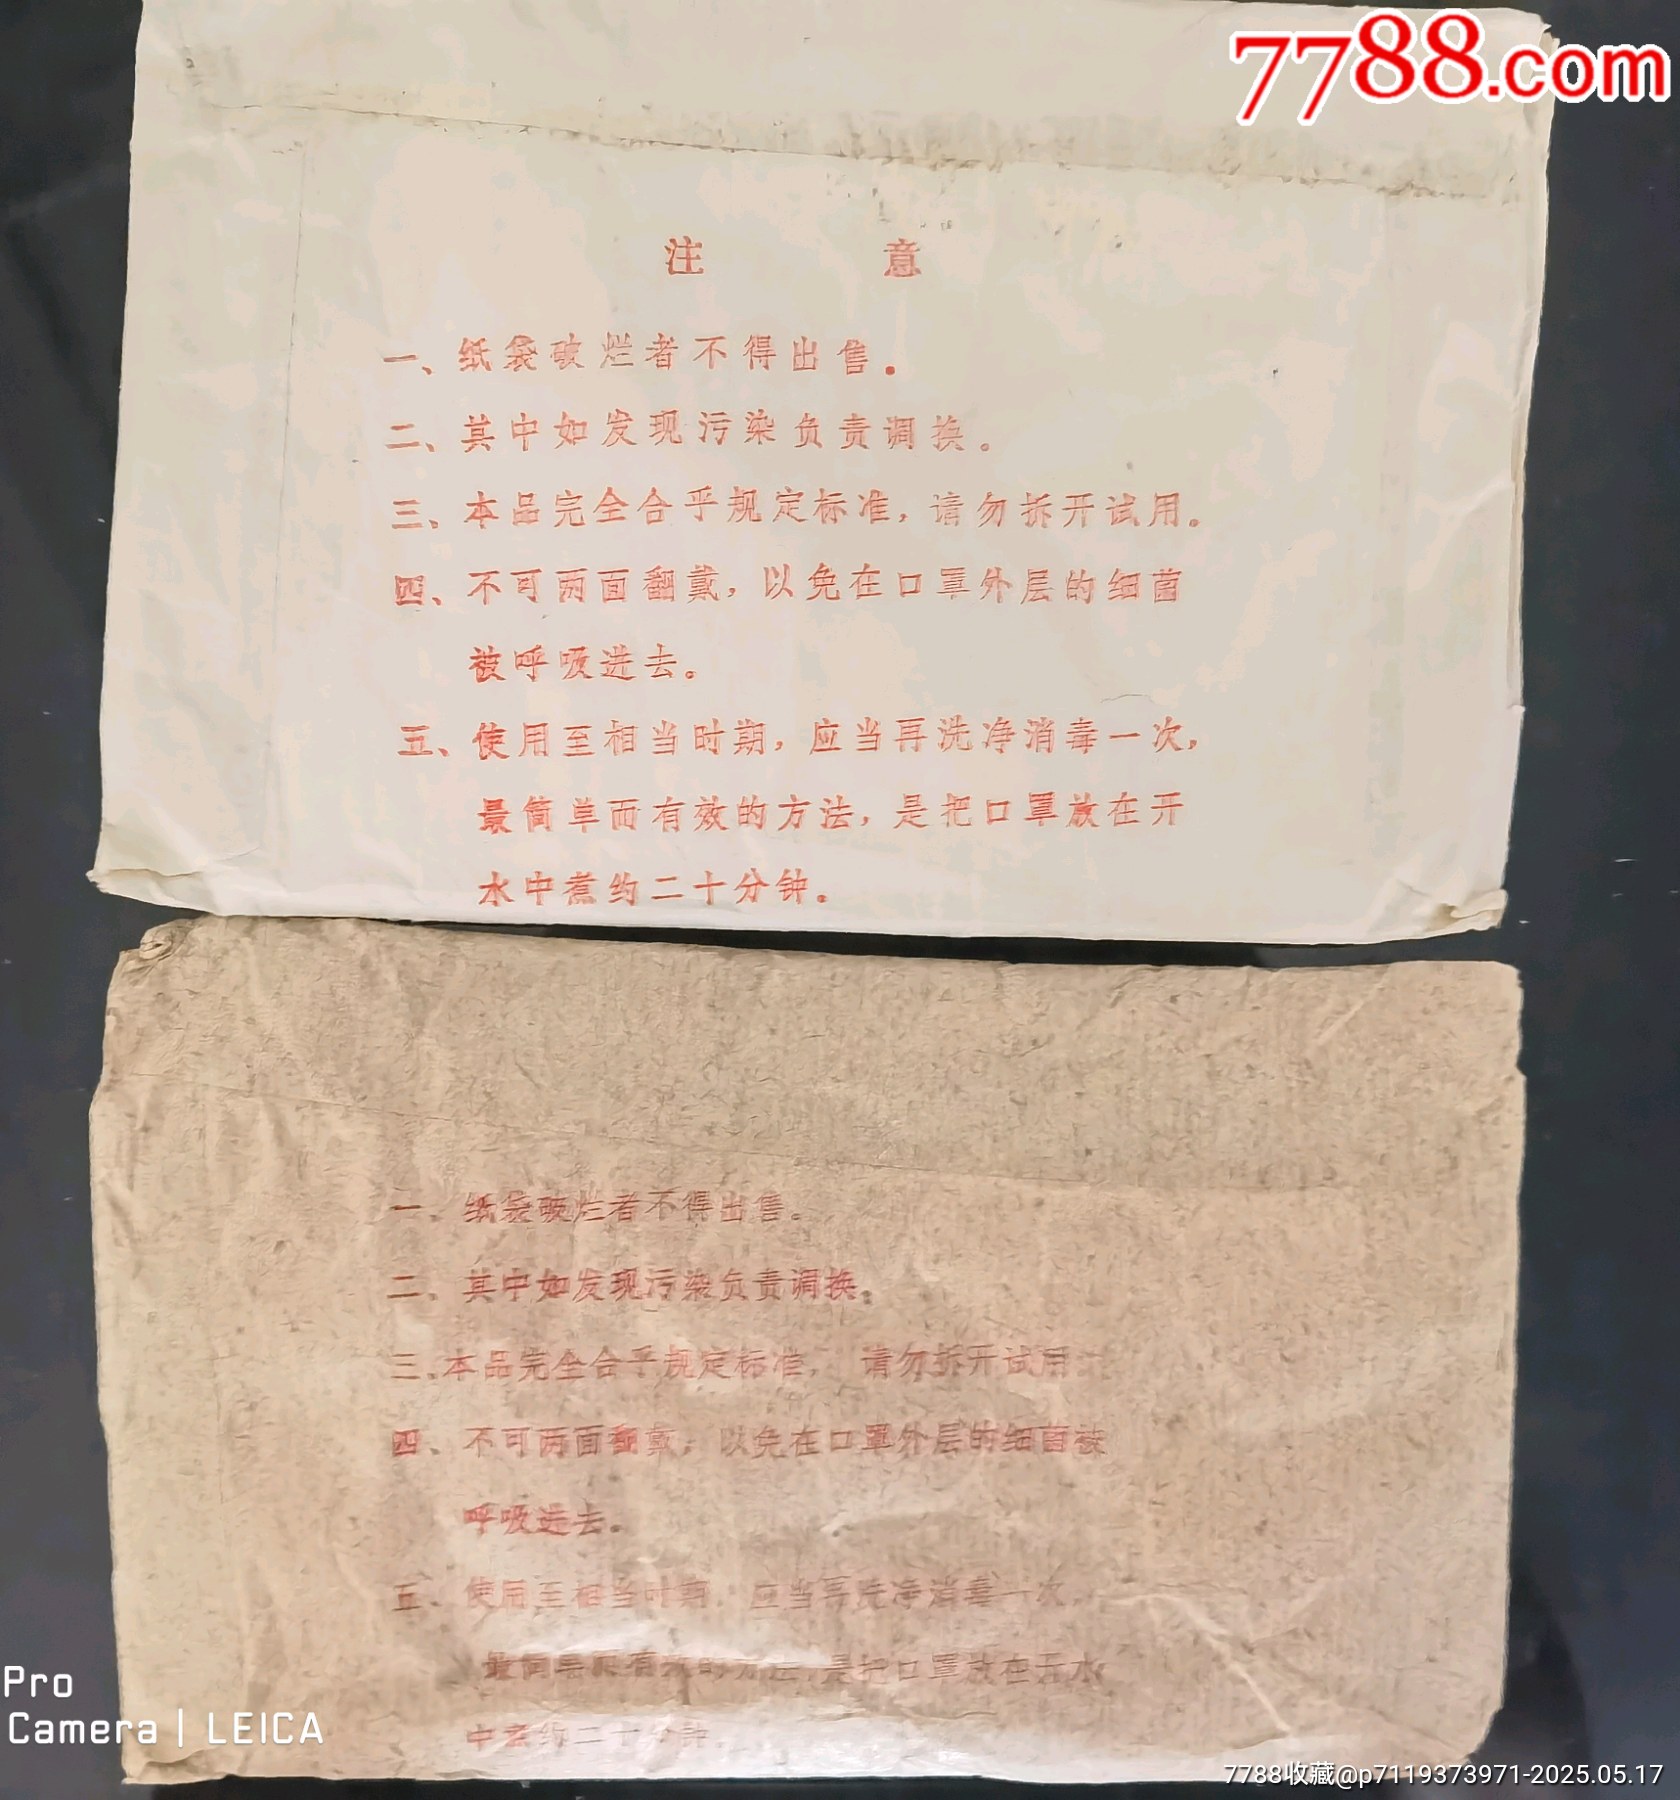 7788.com
注 意
一、纸袋破烂者不得出售。
二、其中如发现污染负责调换。
三、本品完全合乎规定标准，请勿拆开试用。
四、不可两面翻戴，以免在口罩外层的细菌
被呼吸进去。
五、使用至相当时期，应当再洗净消毒一次，
最简单而有效的方法，是把口罩放在开
水中煮约二十分钟。
一、纸袋破烂者不得出售。
二、其中如发现污染负责调换。
三、本品完全合乎规定标准，请勿拆开试用
四、不可两面翻戴，以免在口罩外层的细菌被
呼吸进去。
五、使用至相当时期，应当再洗净消毒一次，
最简单而有效的方法，是把口罩放在开水
中煮约二十分钟。
Pro
Camera | LEICA
7788收藏@p7119373971-2025.05.17